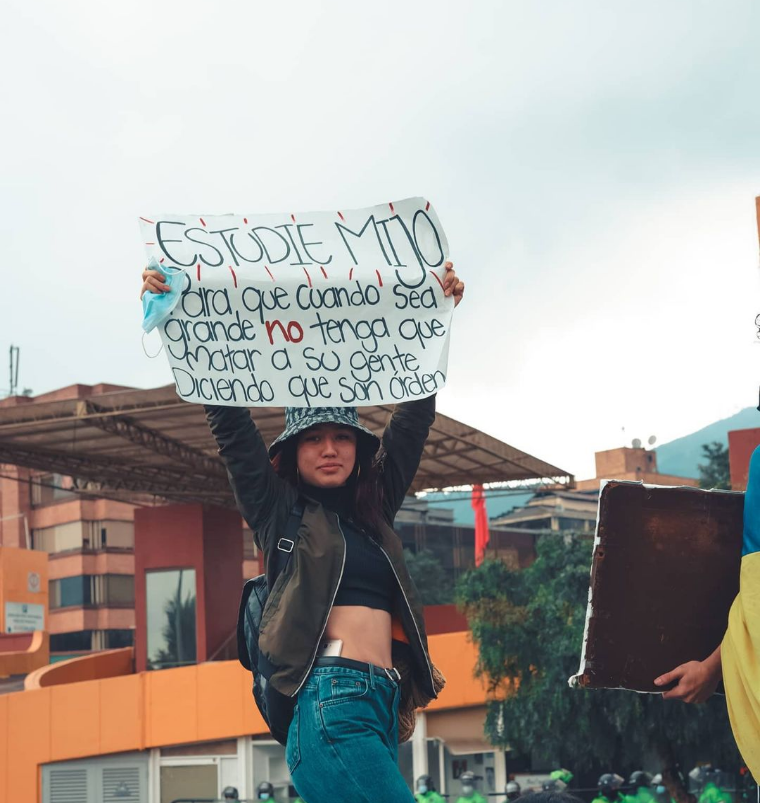 ESTUDIE MIJO
Para que cuando sea
grande no tenga que
matar a su gente
Diciendo que son órden